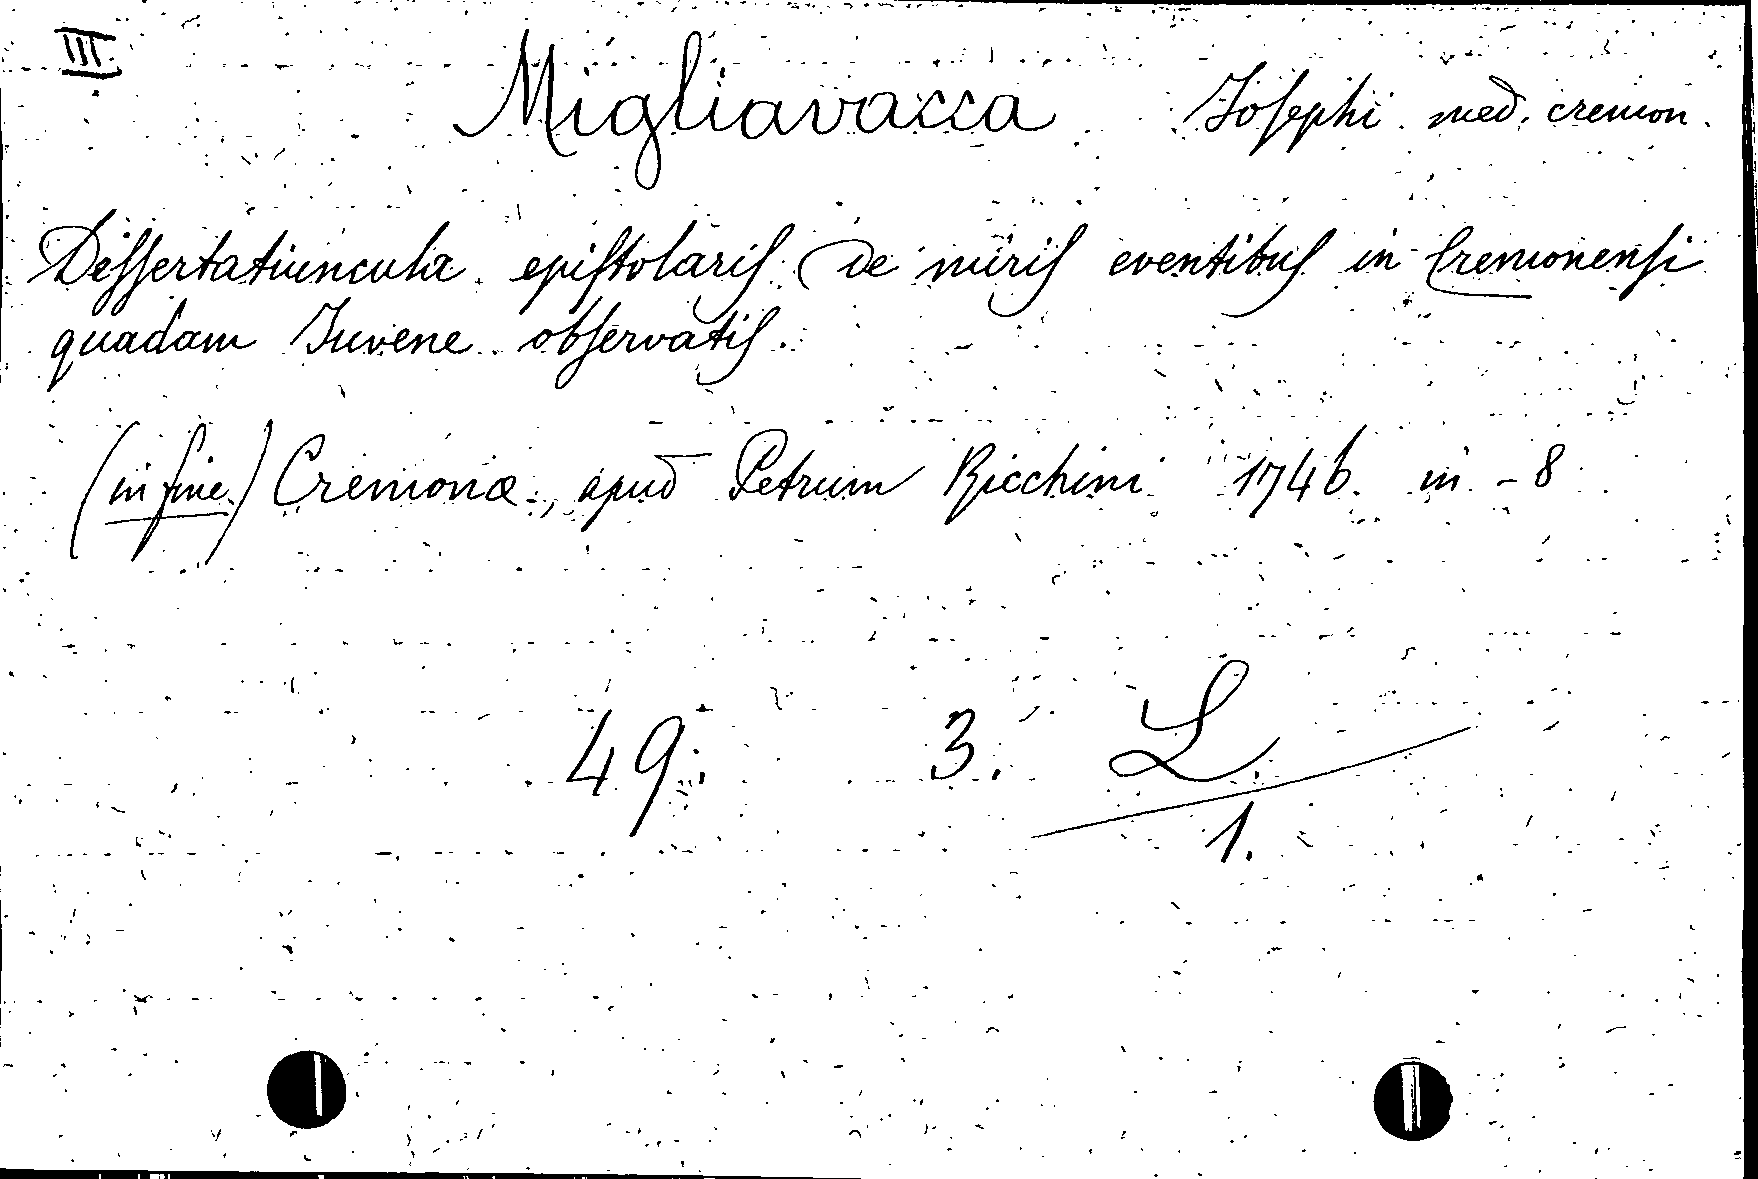 III.
Migliavacca Josephi med. cremon.
Dissertatiuncula epistolaris de miris eventibus in Cremonensi
quadam Iuvene observatis.
(in fine) Cremonæ, apud Petrum Ricchini 1746. in - 8
49. 3. L.
1.